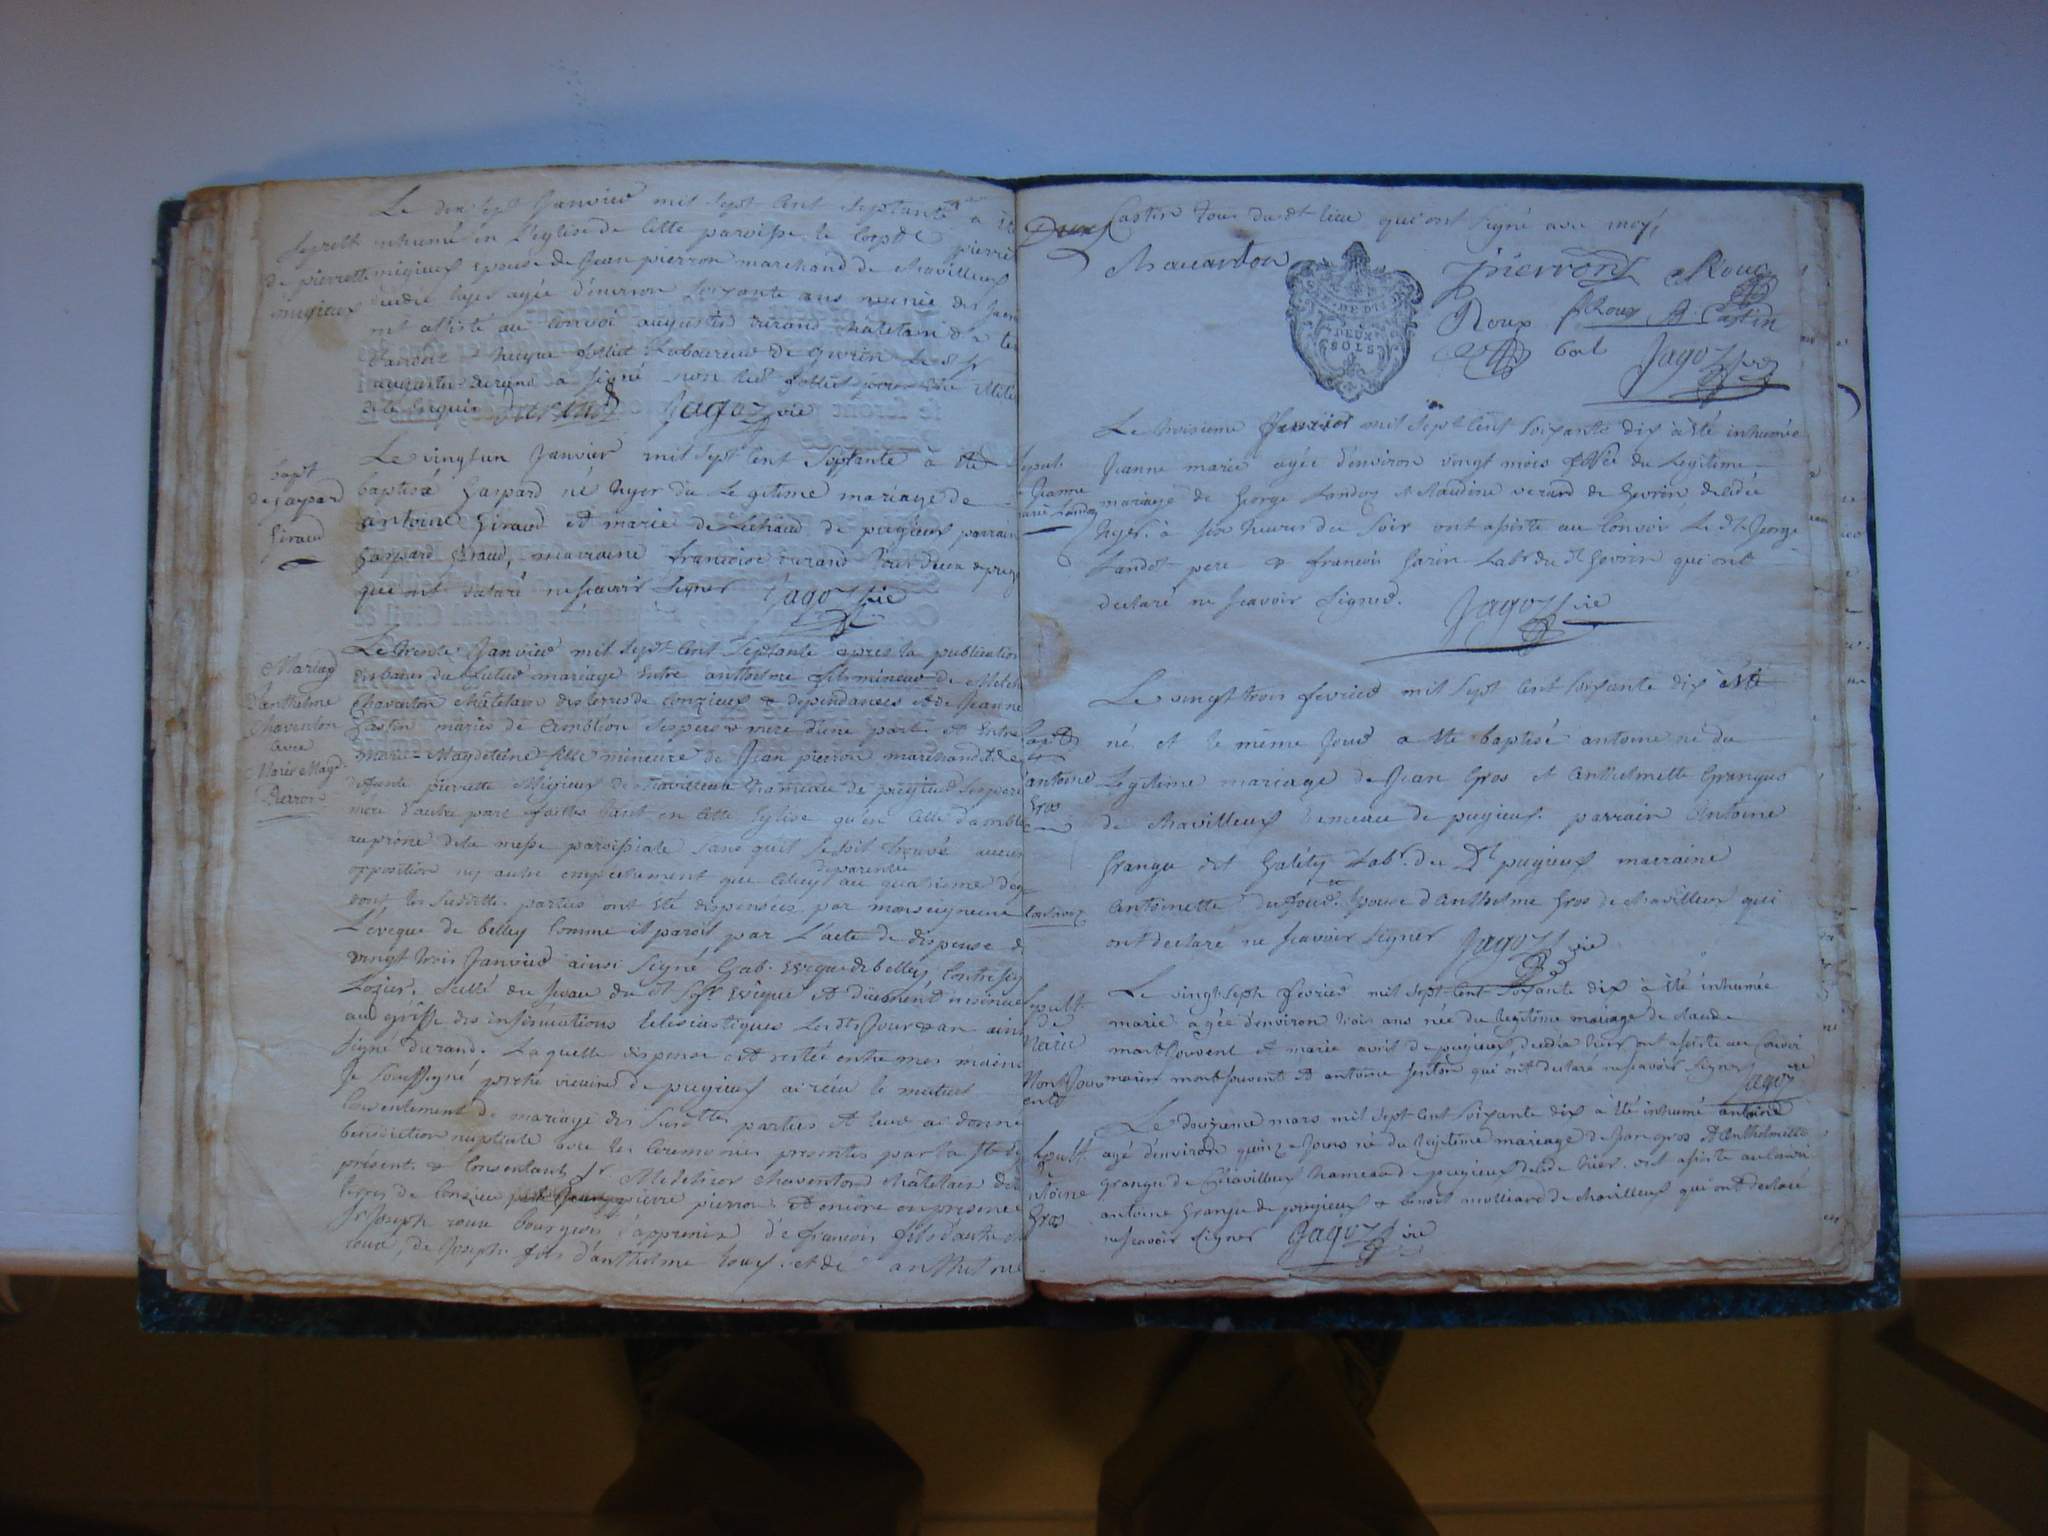 Le dix sept Janvier mil sept cent septante a été
sepult. inhumé en l'église de cette paroisse le corps de pierrette
de pierrette migieux epouse de Jean pierron marchand de Chavilleux
migieux decedée hyer agée d'environ soixante ans munie des
ont assisté au convoi augustin durand chatelain de
laboureur de gevrin le dt sr
augustin durand a signé non led
de ce enquis Durand Jagoz vic
bapt
de gaspard
Giraud
Le vingt un Janvier mil sept cent septante à été
baptisé Gaspard né hyer du legitime mariage de
antoine Giraud et marie de Lichaud de pugieux parrain
gaspard Giraud, marraine francoise durand tous deux de
qui ont declaré ne scavoir signer Jagoz vic
Mariage
D'anthelme
Chaventon
avec
Marie Magd.
Pierron
Le trente Janvier mil sept cent septante après la publication
des bans du futur mariage entre anthelme fils mineur de Melch
Chaventon châtelain des terres de Conzieux & dependances et de Jeanne
Castin mariés de Ambléon ses pere & mere d'une part et entre
Marie-Magdeleine fille mineure de Jean pierron marchand et de
defunte pierrette Migieux de Chavilleux hameau de pugieux ses pere
mere d'autre part faittes tant en cette Eglise qu'en celle d'amblé
au prone de la messe paroissiale sans quil se soit trouvé aucun
opposition ny autre empechement que celuy de parentée au quatrieme deg
dont les susdittes parties ont été dispensées par monseigneur
L'évêque de belley comme il paroit par l'acte de dispense du
vingt trois Janvier ainsi signé Gab. evêque de belley, contresig
Lozier. scellé du sceau du dt sgr Evêque et duement insinué
au greffe des insinuations Eclesiastiques les dts Jour & an ainsi
signé durand. Laquelle dispense est restée entre mes mains
Je soussigné prêtre vicaire de pugieux ai recu le mutuel
consentement de mariage des susdittes parties et leur ai donné
benediction nuptiale avec les ceremonies prescrites par la ste
présent & consentant sr Melchior chaventon châtelain des
terres de Conzieu pierre pierron et encore en presence
sr Joseph roux bourgeois d'apremix de francois fils d'autre
roux, de Joseph fils d'anthelme roux. et de anthelme
Deux Castin tous du dt lieu qui ont signé avec moy,
Chavanton Pierron Roux
DEUX
SOLS
Roux f Roux B. Castin
Jagoz vic
Sepult.
de Jeanne
marie Landoz
Le troisieme fevrier mil sept cent soixante dix à été inhumée
Jeanne marie agée d'environ vingt mois née du legitime
mariage de George Landoz et Claudine verand de gevrin decedée
hyer. à six heures du soir ont assisté au convoi le dt George
Landoz pere & francois Garin Labr du dt Gevrin qui ont
declaré ne scavoir signer. Jagoz vic
bapt
d'antoine
Gros
Le vingt trois fevrier mil sept cent soixante dix est
né et le même Jour a été baptisé antoine né du
Legitime mariage de Jean Gros et Anthelmette Grangue
de Chavilleux hameau de pugieux. parrain Antoine
Grangue dit Galéty Labr. du Dt pugieux marraine
Antoinette Dufour. Epouse d'Anthelme Gros de chavilleux qui
ont declaré ne scavoir signer Jagoz vic
Sepult
de
Marie
Montjouv
ent
Le vingt sept fevrier mil sept cent soixante dix à été inhumée
marie agée d'environ trois ans née du legitime mariage de claude
montjouvent et marie avril de pugieux, decedée hier ont assisté au convoi
marin montjouvent et antoine janton qui ont declaré ne scavoir signer Jagoz vic
Sepult.
d'
Antoine
Gros
Le douzieme mars mil sept cent soixante dix à été inhumé antoine
agé d'environ quinze Jours né du legitime mariage de Jean gros et Anthelmette
grangue de Chavilleux hameau de pugieux decedé hier. ont assisté au convoi
antoine Grangue de pugieux & benoit molliard de chavilleux qui ont declaré
ne scavoir signer Jagoz vic